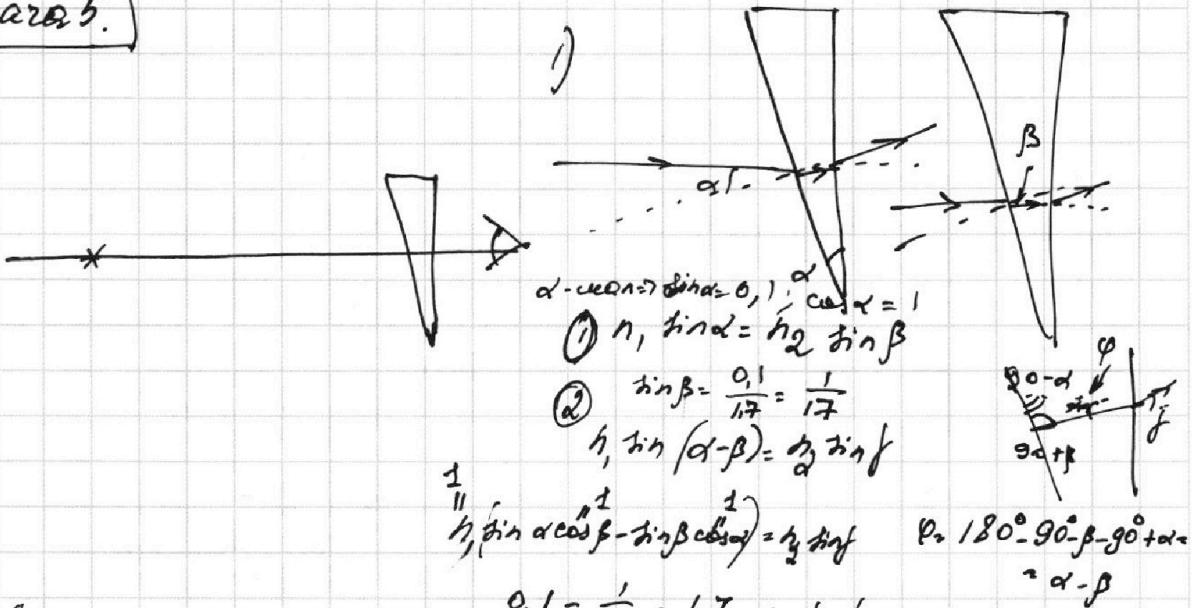 1)
α
α
β
sinα = 0,1; cos α = 1
① n₁ sinα = n₂ sin β
② sinβ = 0,1/1,7 = 1/17
n₁ sin (α-β) = n₂ sin f
1 1 1
n₁(sin α cos β - sinβ cosα) = n₂ sinf
90-α
φ
90+β
f
φ = 180° - 90° - β - 90° + α =
= α - β